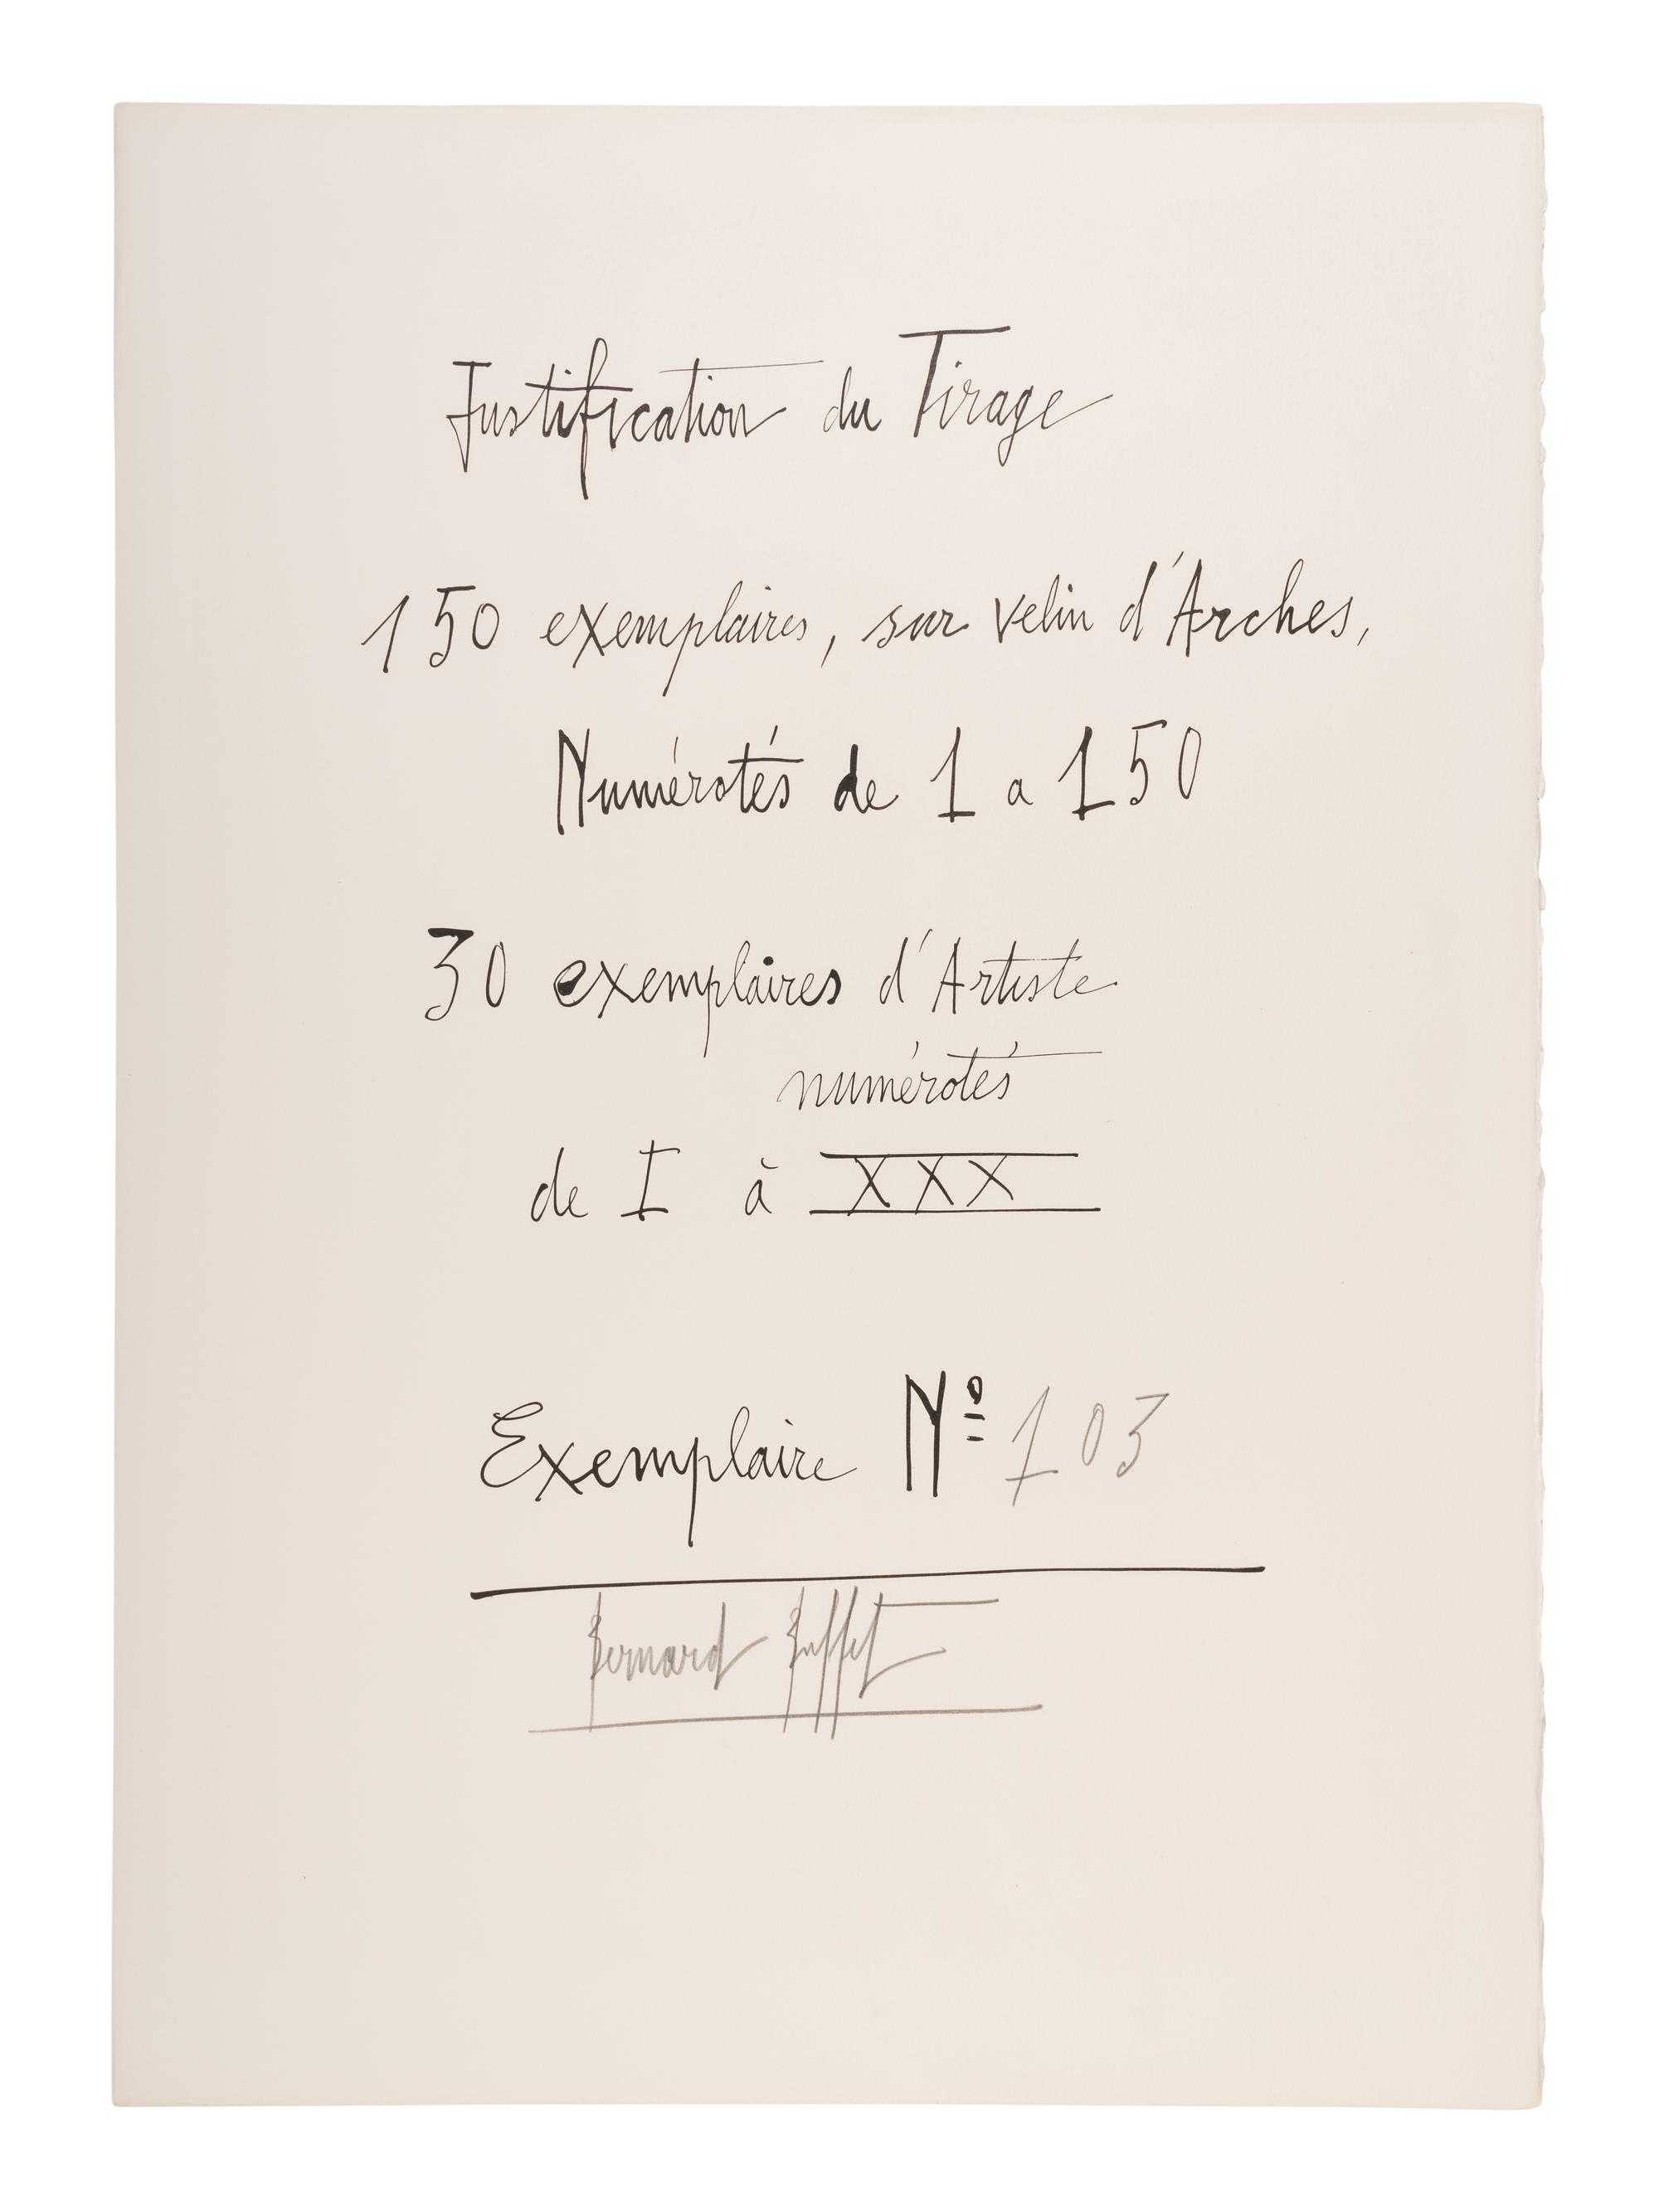 Justification du Tirage
150 exemplaires, sur velin d'Arches,
Numérotés de 1 a 150
30 exemplaires d'Artiste
numérotés
de I à XXX
Exemplaire Nº 103
Bernard Buffet